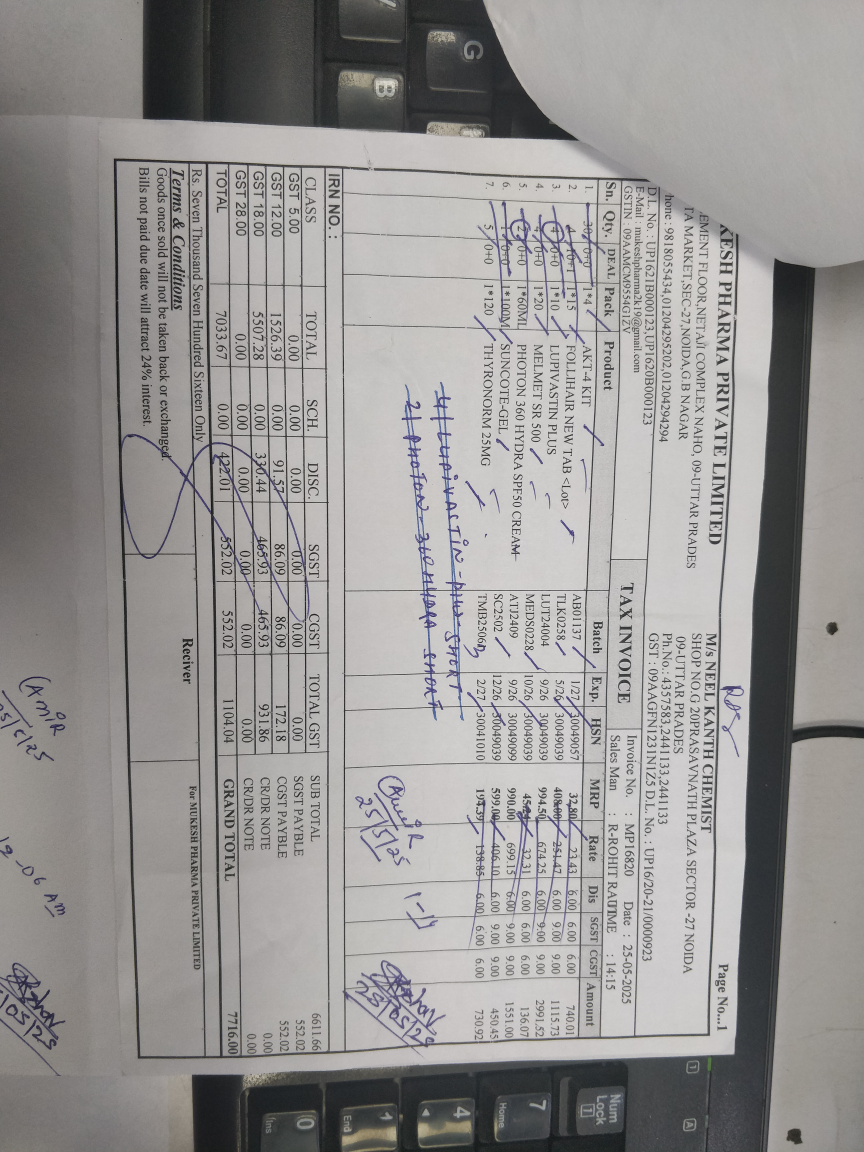 KESH PHARMA PRIVATE LIMITED
EMENT FLOOR,NETAJI COMPLEX NAHO, 09-UTTAR PRADES
TA MARKET,SEC-27,NOIDA,G B NAGAR
hone : 9818055434,01204295202,01204294294
D.L. No. : UP1621B000123,UP1620B000123
E-Mail : mukeshpharma2k19@gmail.com
GSTIN : 09AAMCM9554G1ZV
TAX INVOICE
Page No...1
M/s NEEL KANTH CHEMIST
SHOP NO.G 20PRASAVNATH PLAZA SECTOR -27 NOIDA
09-UTTAR PRADES
Ph.No.: 4357583,2441133,2441133
GST : 09AAGFN1231N1Z5 D.L. No. : UP16/20-21/0000923
Invoice No. : MP16820 Date : 25-05-2025
Sales Man : R-ROHIT RAI TIME : 14:15
Sn. Qty. DEAL Pack Product Batch Exp. HSN MRP Rate Dis SGST CGST Amount
1. 30 0+0 1*4 AKT-4 KIT AB01137 1/27 30049057 32.80 23.43 6.00 6.00 6.00 740.01
2. 10+1 1*15 FOLLIHAIR NEW TAB <Lot> TLK0258 5/26 30049039 408.00 251.47 6.00 9.00 9.00 1115.73
3. 4 0+0 1*10 LUPIVASTIN PLUS LUT24004 9/26 30049039 994.50 674.25 6.00 9.00 9.00 2991.52
4. 0+0 1*20 MELMET SR 500 MEDS0228 10/26 30049039 32.31 6.00 6.00 6.00 136.07
5. 2 0+0 1*60ML PHOTON 360 HYDRA SPF50 CREAM ATJ2409 9/26 30049099 990.00 699.15 6.00 9.00 9.00 1551.00
6. 1 0+0 1*100ML SUNCOTE-GEL SC2502 12/26 30049039 599.00 406.10 6.00 9.00 9.00 450.45
7. 5 0+0 1*120 THYRONORM 25MG 2/27 30041010 194.39 138.85 6.00 6.00 6.00 730.92
4/ LUPIVASTIN-PLUS-SHORT
2/ PHOTON-360 HYDRA SHORT
AMIR
25/5/25
25/05/25
IRN NO. :
CLASS TOTAL SCH. DISC. SGST CGST TOTAL GST
GST 5.00 0.00 0.00 0.00 0.00 0.00 0.00
GST 12.00 1526.39 0.00 91.57 86.09 86.09 172.18
GST 18.00 5507.28 0.00 330.44 465.93 465.93 931.86
GST 28.00 0.00 0.00 0.00 0.00 0.00 0.00
TOTAL 7033.67 0.00 422.01 552.02 552.02 1104.04
SUB TOTAL 6611.66
SGST PAYBLE 552.02
CGST PAYBLE 552.02
CR/DR NOTE 0.00
CR/DR NOTE 0.00
GRAND TOTAL 7716.00
Rs. Seven Thousand Seven Hundred Sixteen Only
Terms & Conditions
Goods once sold will not be taken back or exchanged.
Bills not paid due date will attract 24% interest.
Reciver
For MUKESH PHARMA PRIVATE LIMITED
AMIR
G
B
Num Lock
7
Home
4
1
End
0
Ins
1
A